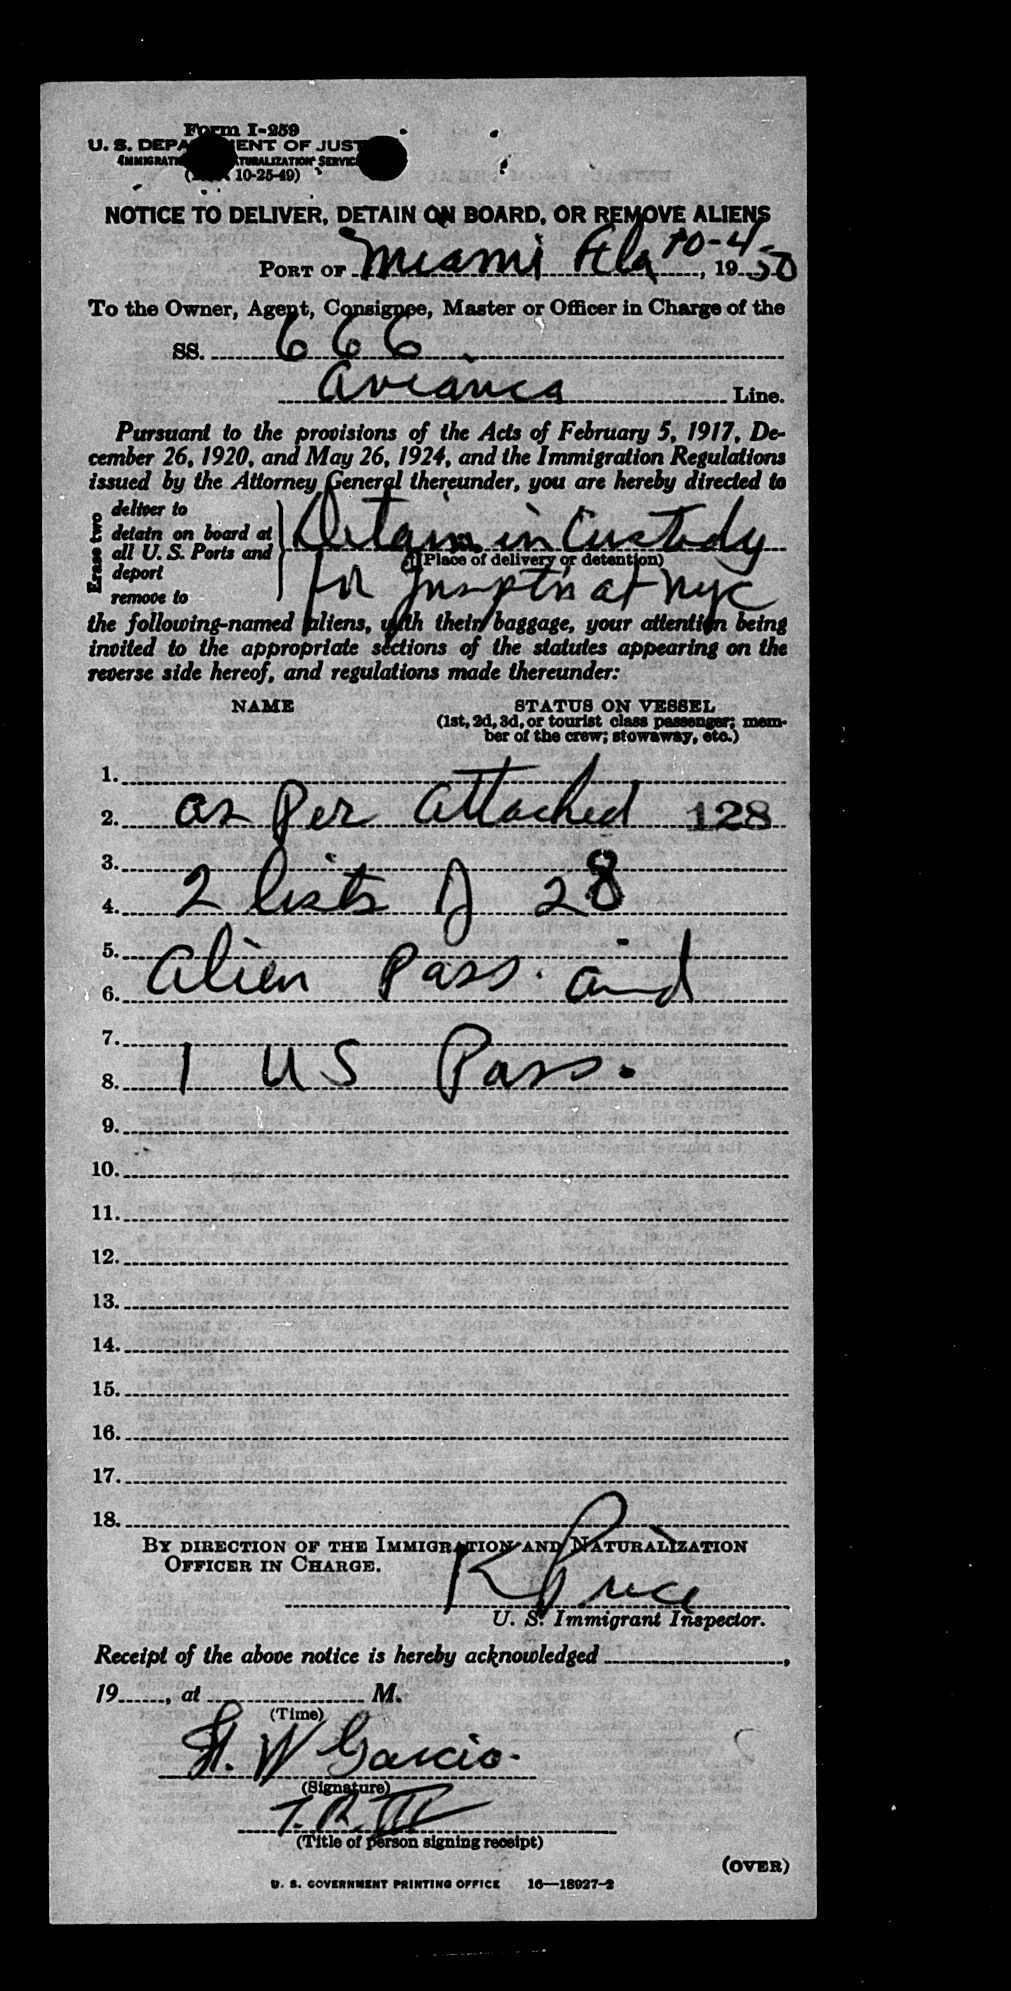 Form I-259
U. S. DEPARTMENT OF JUSTICE
IMMIGRATION NATURALIZATION SERVICE
10-25-49)
NOTICE TO DELIVER, DETAIN ON BOARD, OR REMOVE ALIENS
PORT OF Miami Fla 10-4-, 1950
To the Owner, Agent, Consignee, Master or Officer in Charge of the
SS. 666
Avianca Line.
Pursuant to the provisions of the Acts of February 5, 1917, De-
cember 26, 1920, and May 26, 1924, and the Immigration Regulations
issued by the Attorney General thereunder, you are hereby directed to
Erase two
deliver to
detain on board at
all U. S. Ports and
deport
remove to
Detain in Custody
(Place of delivery or detention)
for Insptn at NYC
the following-named aliens, with their baggage, your attention being
invited to the appropriate sections of the statutes appearing on the
reverse side hereof, and regulations made thereunder:
NAME STATUS ON VESSEL
(1st, 2d, 3d, or tourist class passenger; mem-
ber of the crew; stowaway, etc.)
1.
2. as per attached 128
3.
4. 2 lists of 28
5.
6. alien Pass. and
7.
8. 1 US Pass.
9.
10.
11.
12.
13.
14.
15.
16.
17.
18.
BY DIRECTION OF THE IMMIGRATION AND NATURALIZATION
OFFICER IN CHARGE.
R Price
U. S. Immigrant Inspector.
Receipt of the above notice is hereby acknowledged ,
19 , at M.
(Time)
W Garcia
(Signature)
(Title of person signing receipt)
(OVER)
U. S. GOVERNMENT PRINTING OFFICE 16—18927-2